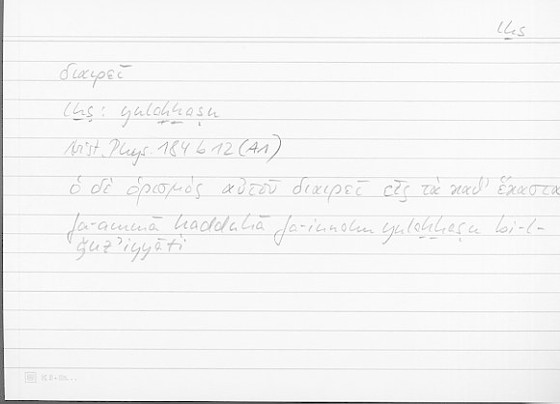 lḫṣ
διαιρεῖ
lḫṣ: yulaḫḫaṣu
Arist. Phys. 184 b 12 (A1)
ὁ δὲ ὁρισμὸς αὐτοῦ διαιρεῖ εἰς τὰ καθ' ἕκαστα
fa-ammā ḥadduhā fa-innahu yulaḫḫaṣu bi-l-
ǧuz'iyyāti